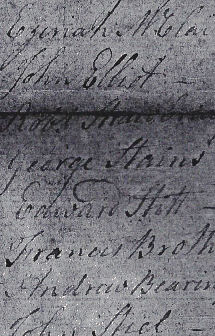 Ezeriah McClai
John Elliot
George Stains
Edward Stitt
Francis Broth
Andrew Bearin
John Stiel